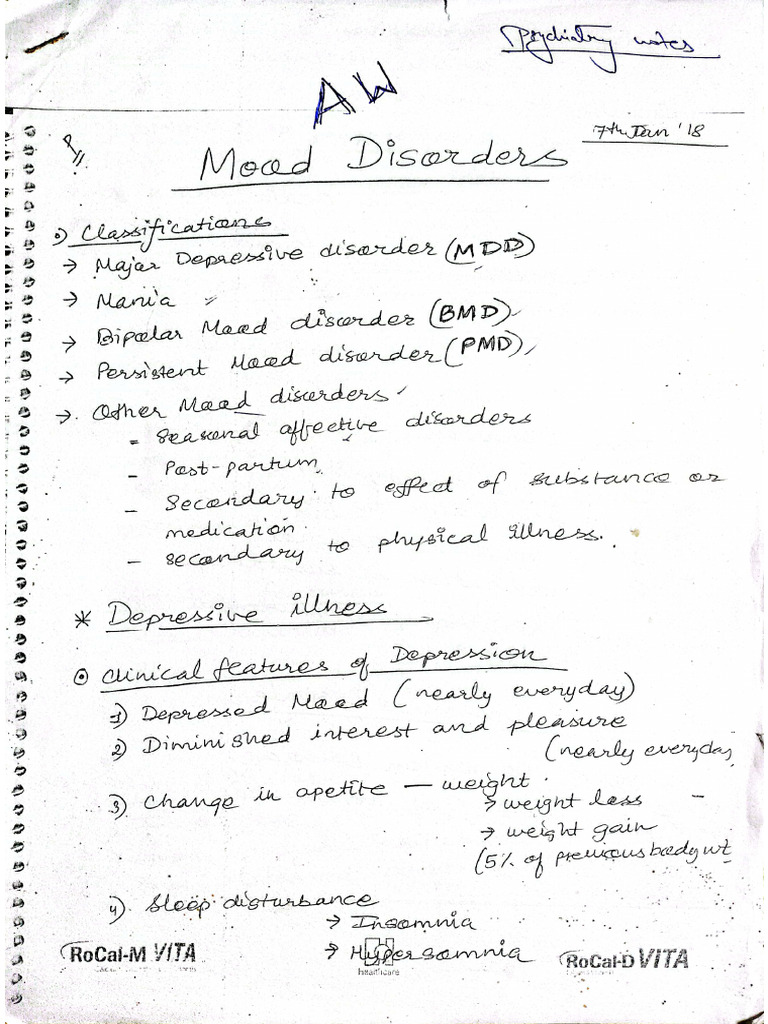 Psychiatry notes
AW
7th Jan '18
Mood Disorders
Classifications
→ Major Depressive disorder (MDD)
→ Mania
→ Bipolar Mood disorder (BMD)
→ Persistent Mood disorder (PMD)
→ Other Mood disorders
- Seasonal affective disorders
- Post-partum
- Secondary to effect of substance or
medication
- Secondary to physical illness.
* Depressive illness
Clinical features of Depression
1) Depressed Mood (nearly everyday)
2) Diminished interest and pleasure
(nearly everyday
3) Change in apetite — weight
→ weight loss
→ weight gain
(5% of previous body wt
4) Sleep disturbance
→ Insomnia
→ Hypersomnia
RoCal-M VITA
healthcare
RoCal-D VITA